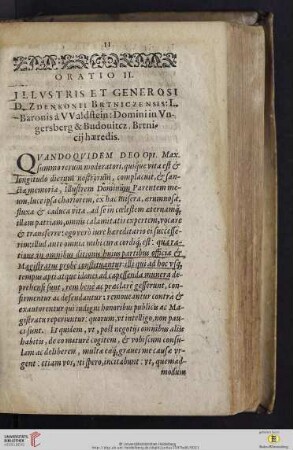 II
ORATIO II.
ILLVSTRIS ET GENEROSI
D. ZDENKONIS BRTNICZENSIS L.
Baronis á VValdstein: Domini in Vn-
gersberg & Budouitcz. Brtni-
cij hæredis.
QVANDOQVIDEM DEO Opt. Max.
summo rerum moderatori, quisque vita est &
longitudo dierum nostrorum, complacuit, & san-
cta memoria, illustrem Dominum Parentem me-
um, luce ipsa chariorem, ex hac misera, ærumnosa,
fluxa & caduca vita, ad se in cœlestem æternamq́,
illam patriam, omnis calamitatis expertem, vocare
& transferre: ego verò iure hæreditario ei successe-
rim: illud ante omnia mihi cura cordiq́, est: qua ra-
tione in omnibus ditionis huius partibus officia &
Magistratus probè constituantur: illi qui ad hoc vsq́,
tempus apti atque idonei ad capessenda munera de-
prehensi sunt, rem bene ac præclarè gesserunt, con-
firmentur ac defendantur: remoueantur contrà &
exautorentur qui indigni honoribus publicis ac Ma-
gistratu reperiuntur: quorum, vt intelligo, non pau-
ci sunt. Et quidem, vt, post negotijs omnibus alijs
habitis, de
consu-
lam ac deliberem, multæ eæq́, graues me causæ vr-
gent: etiam vos, vti spero, incitabunt: vt, quemad-
modum
UNIVERSITÄTS-
BIBLIOTHEK
HEIDELBERG
© Universitätsbibliothek Heidelberg
Baden-Württemberg